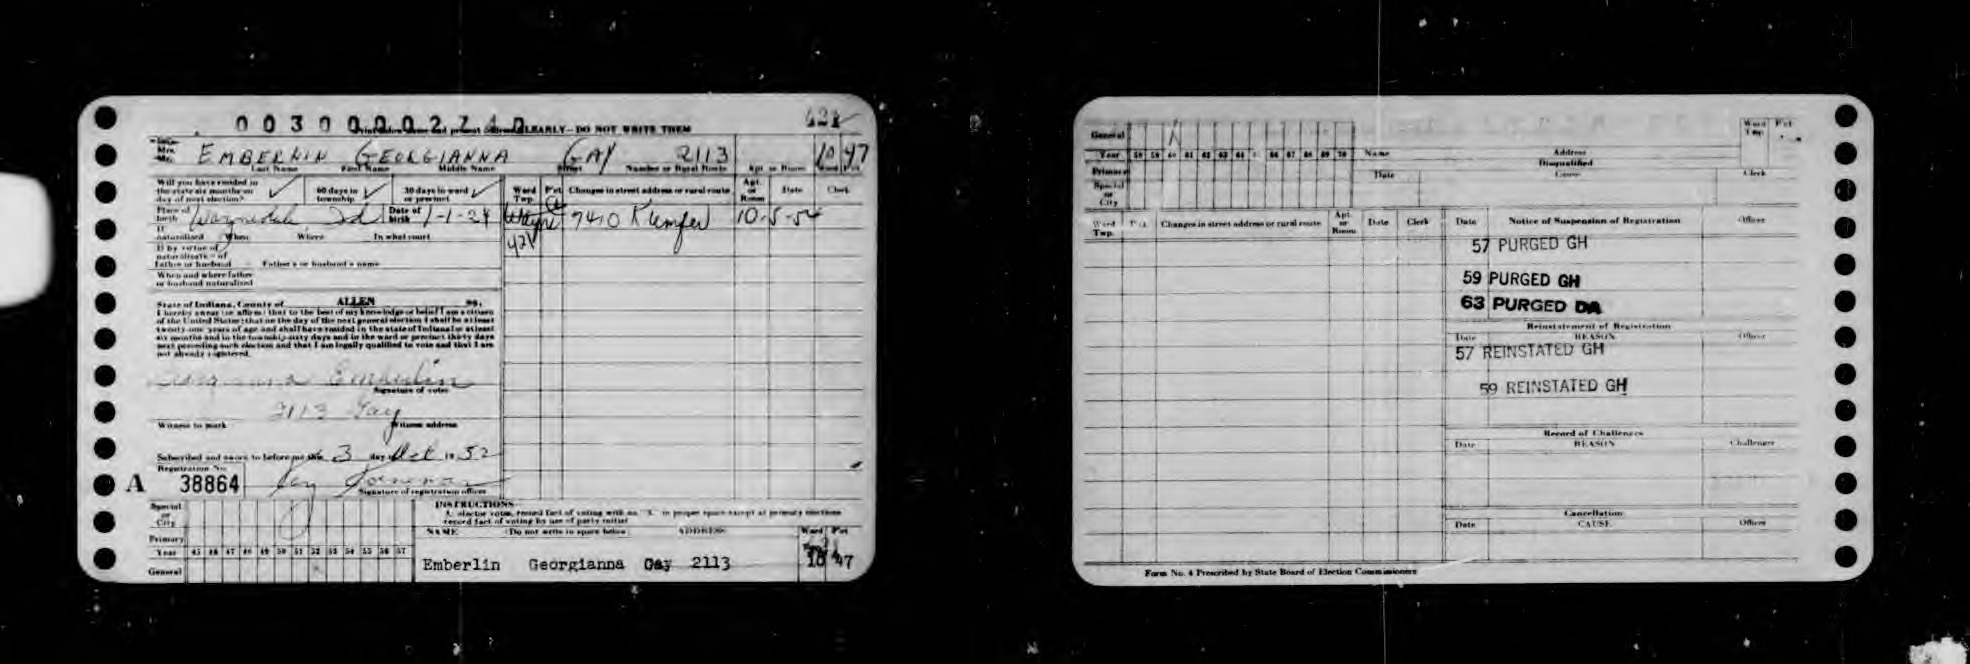 0 0 3 0 0 0 0 0 2 7 4 0
CLEARLY - DO NOT WRITE THEM
Mrs.
EMBERLIN GEORGIANNA GAY 2113 10 47
Last Name First Name Middle Name Street Number or Rural Route Apt or Room Ward Pct
Will you have resided in the state six months on day of next election? 60 days in township 30 days in ward or precinct
Ward Twp. Pct Changes in street address or rural route Apt. or Room Date Clerk
Place of birth Waynedale Ind Date of birth 1-1-24
Wayne 7410 Kumfer 10-5-54
If naturalized When Where In what court
If by virtue of naturalization of father or husband Father's or husband's name
When and where father or husband naturalized
State of Indiana, County of ALLEN ss.
I hereby swear (or affirm) that to the best of my knowledge or belief I am a citizen
of the United States; that on the day of the next general election I shall be at least
twenty-one years of age and shall have resided in the state of Indiana at least
six months and in the township sixty days and in the ward or precinct thirty days
next preceding such election and that I am legally qualified to vote and that I am
not already registered.
Georgianna Emberlin
Signature of voter
2113 Gay
Witness to mark Witness address
Subscribed and sworn to before me this 3 day of Oct 19 52
Registration No.
A 38864
Signature of registration officer
Special or City
Primary
Year 45 46 47 48 49 50 51 52 53 54 55 56 57
General
INSTRUCTIONS
If elector votes, record fact of voting with an "X" in proper space except at primary elections
record fact of voting by use of party initial
NAME (Do not write in space below) ADDRESS Ward Pct
Emberlin Georgianna Gay 2113 10 47
General
Year 58 59 60 61 62 63 64 66 67 68 69 70
Primary
Special or City
Name Address
Ward Twp. Pct
Disqualified
Date Cause Clerk
Ward Twp. Pct. Changes in street address or rural route Apt. or Room Date Clerk
Date Notice of Suspension of Registration Officer
57 PURGED GH
59 PURGED GH
63 PURGED DA
Reinstatement of Registration
Date REASON Officer
57 REINSTATED GH
59 REINSTATED GH
Record of Challenges
Date REASON Challenger
Cancellation
Date CAUSE Officer
Form No. 4 Prescribed by State Board of Election Commissioners